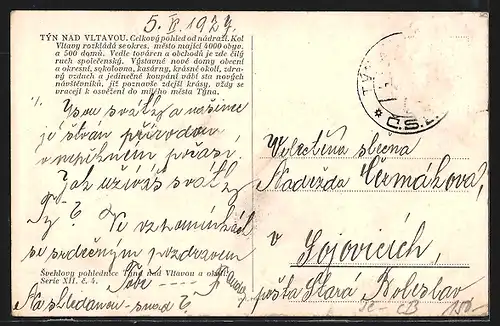 5. V. 1927.
TÝN NAD VLTAVOU. Celkový pohled od nádraží. Kol
Vltavy rozkládá se okres. město mající 4000 obyv.
a 500 domů. Vedle továren a obchodů je zde čilý
ruch společenský. Výstavné nové domy obecní
a okresní, sokolovna, kasárny, krásné okolí, zdra-
vý vzduch a jedinečné koupání vábí sta nových
návštěvníků, již poznavše zdejší krásy, vždy se
vracejí k osvěžení do milého města Týna.
TÝN
* Č.S.
Jsou svátky a
je
v počasí.
Jak užíváš svátky
Ty? Ve vzpomínkách
se srdečným pozdravem
Tobě
Švehlovy pohlednice Týna nad Vltavou a
Serie XII. č. 4.
Na shledanou - snad?
Velectěná slečna
Naděžda Čermákova,
v
Sojovicích,
pošta Stará Boleslav
150